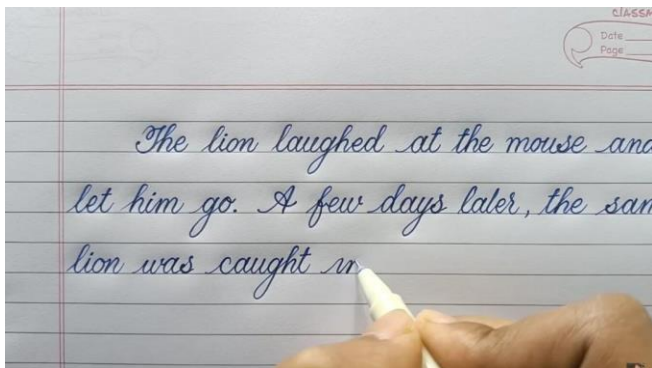 CLASSM
Date
Page
The lion laughed at the mouse and
let him go. A few days later, the sam
lion was caught in